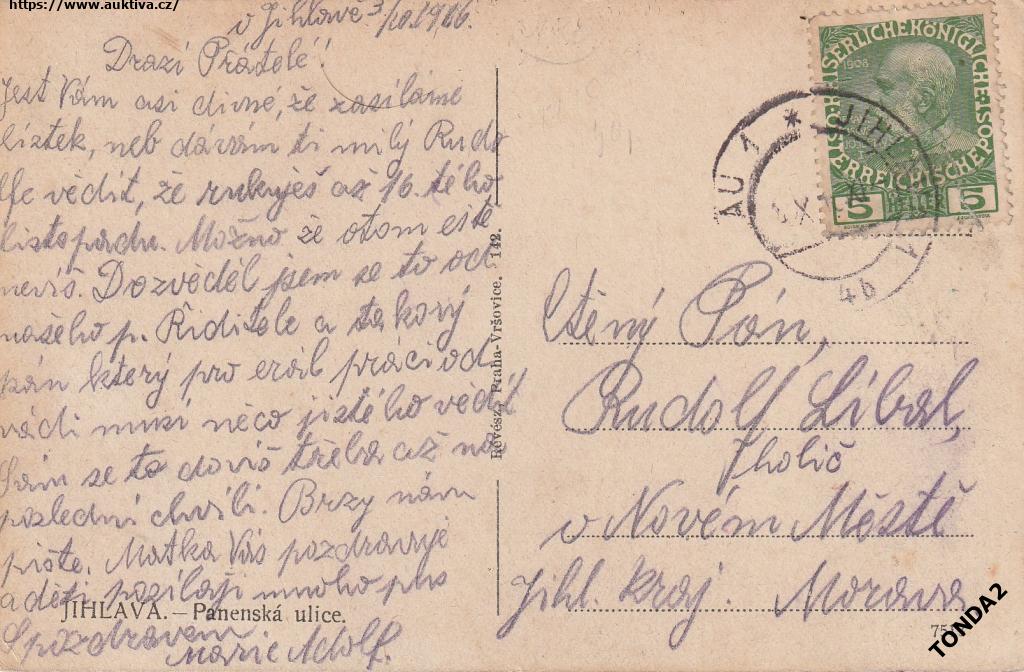 https://www.auktiva.cz/
v Jihlavě 3/10.1916.
Drazí Přátelé!
Jest Vám asi divné, že zasíláme
lístek, neb dávám ti milý Rudo
lfe vědit, že rukuješ až 16. tého
listopadu. Možno že otom eště
nevíš. Dozvěděl jsem se to od
našeho p. Řiditele a takový
pán který pro erál práci od
vádí musí něco jistého vědít
Sám se to dovíš třeba až na
poslední chvíli. Brzy nám
pište. Matka Vás pozdravuje
a děti posílají mnoho
JIHLAVA. — Panenská ulice.
S pozdravem
Marie Adolf.
Révész, Praha-Vršovice. 142.
KAISERLICHEKÖNIGLICHE
ÖSTERREICHISCHEPOST
1908
5 HELLER 5
JIHLAVA
AU 1 *
X
4b
Ctěný Pán,
Rudolf Líbal,
holič
v Novém Městě
Jihl. kraj. Morava
TONDA2